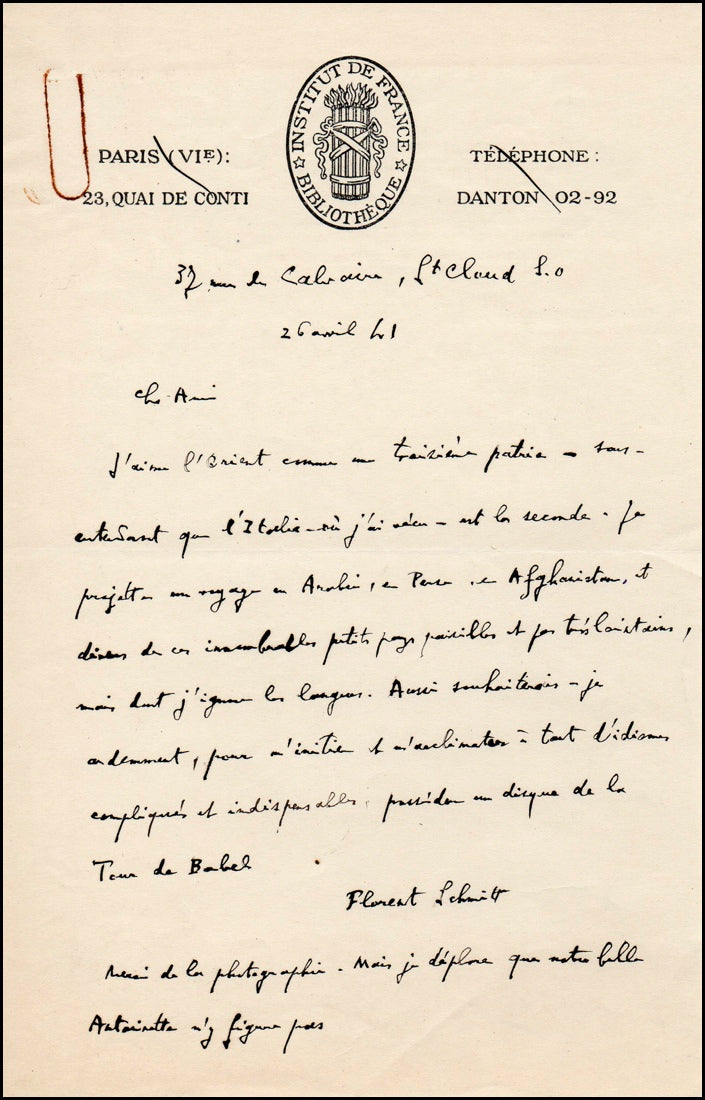 INSTITUT DE FRANCE
BIBLIOTHÈQUE
PARIS (VIE):
23, QUAI DE CONTI
TÉLÉPHONE :
DANTON 02-92
37 rue du Calvaire, St Cloud S.O
26 avril 41
Cher Ami
J'aime l'Orient comme une troisième patrie – sous-
entendant que l'Italie – où j'ai vécu – est la seconde. Je
projette un voyage en Arabie, en Perse, en Afghanistan, et
dans de ces innombrables petits pays paisibles et pas très lointains,
mais dont j'ignore les langues. Aussi souhaiterais-je
ardemment, pour m'initier et m'acclimater à tant d'idiomes
compliqués et indispensables, posséder un disque de la
Tour de Babel
Florent Schmitt
Merci de la photographie. Mais je déplore que notre belle
Antoinette n'y figure pas